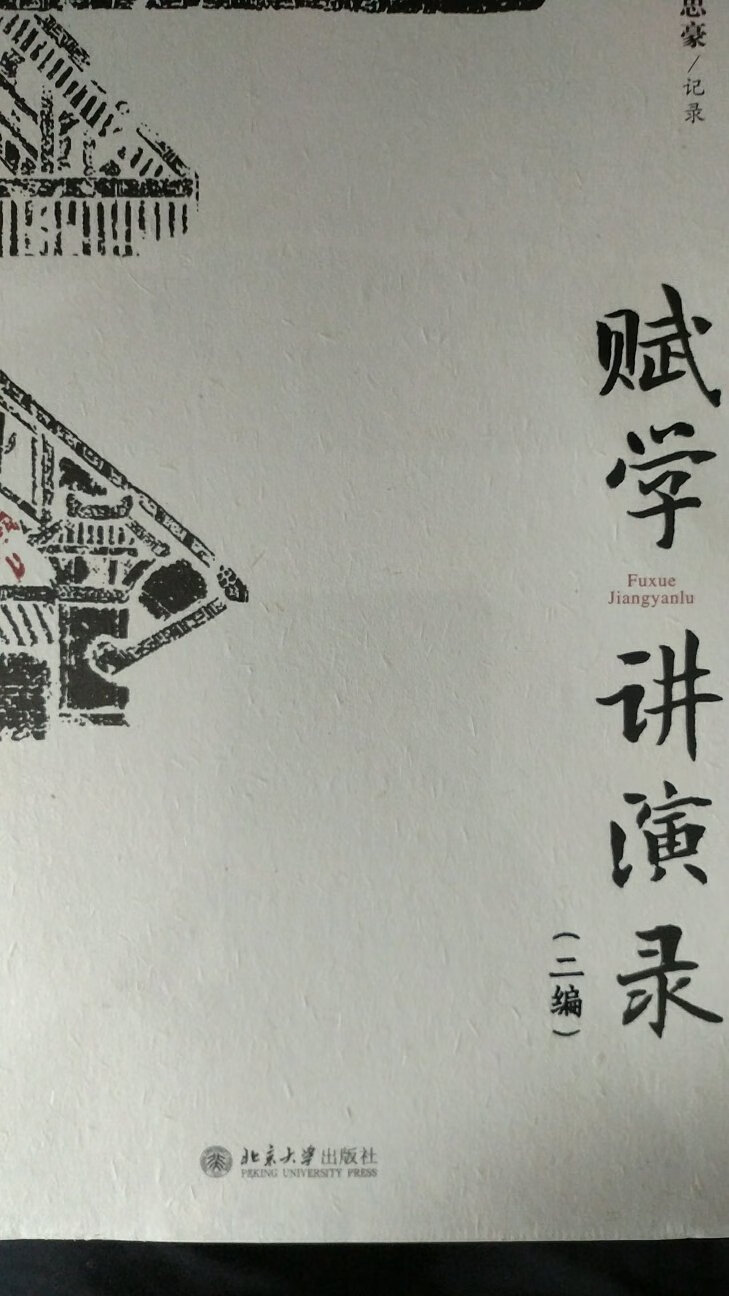 思豪/记录
赋学讲演录
Fuxue
Jiangyanlu
(二编)
北京大学出版社
PEKING UNIVERSITY PRESS